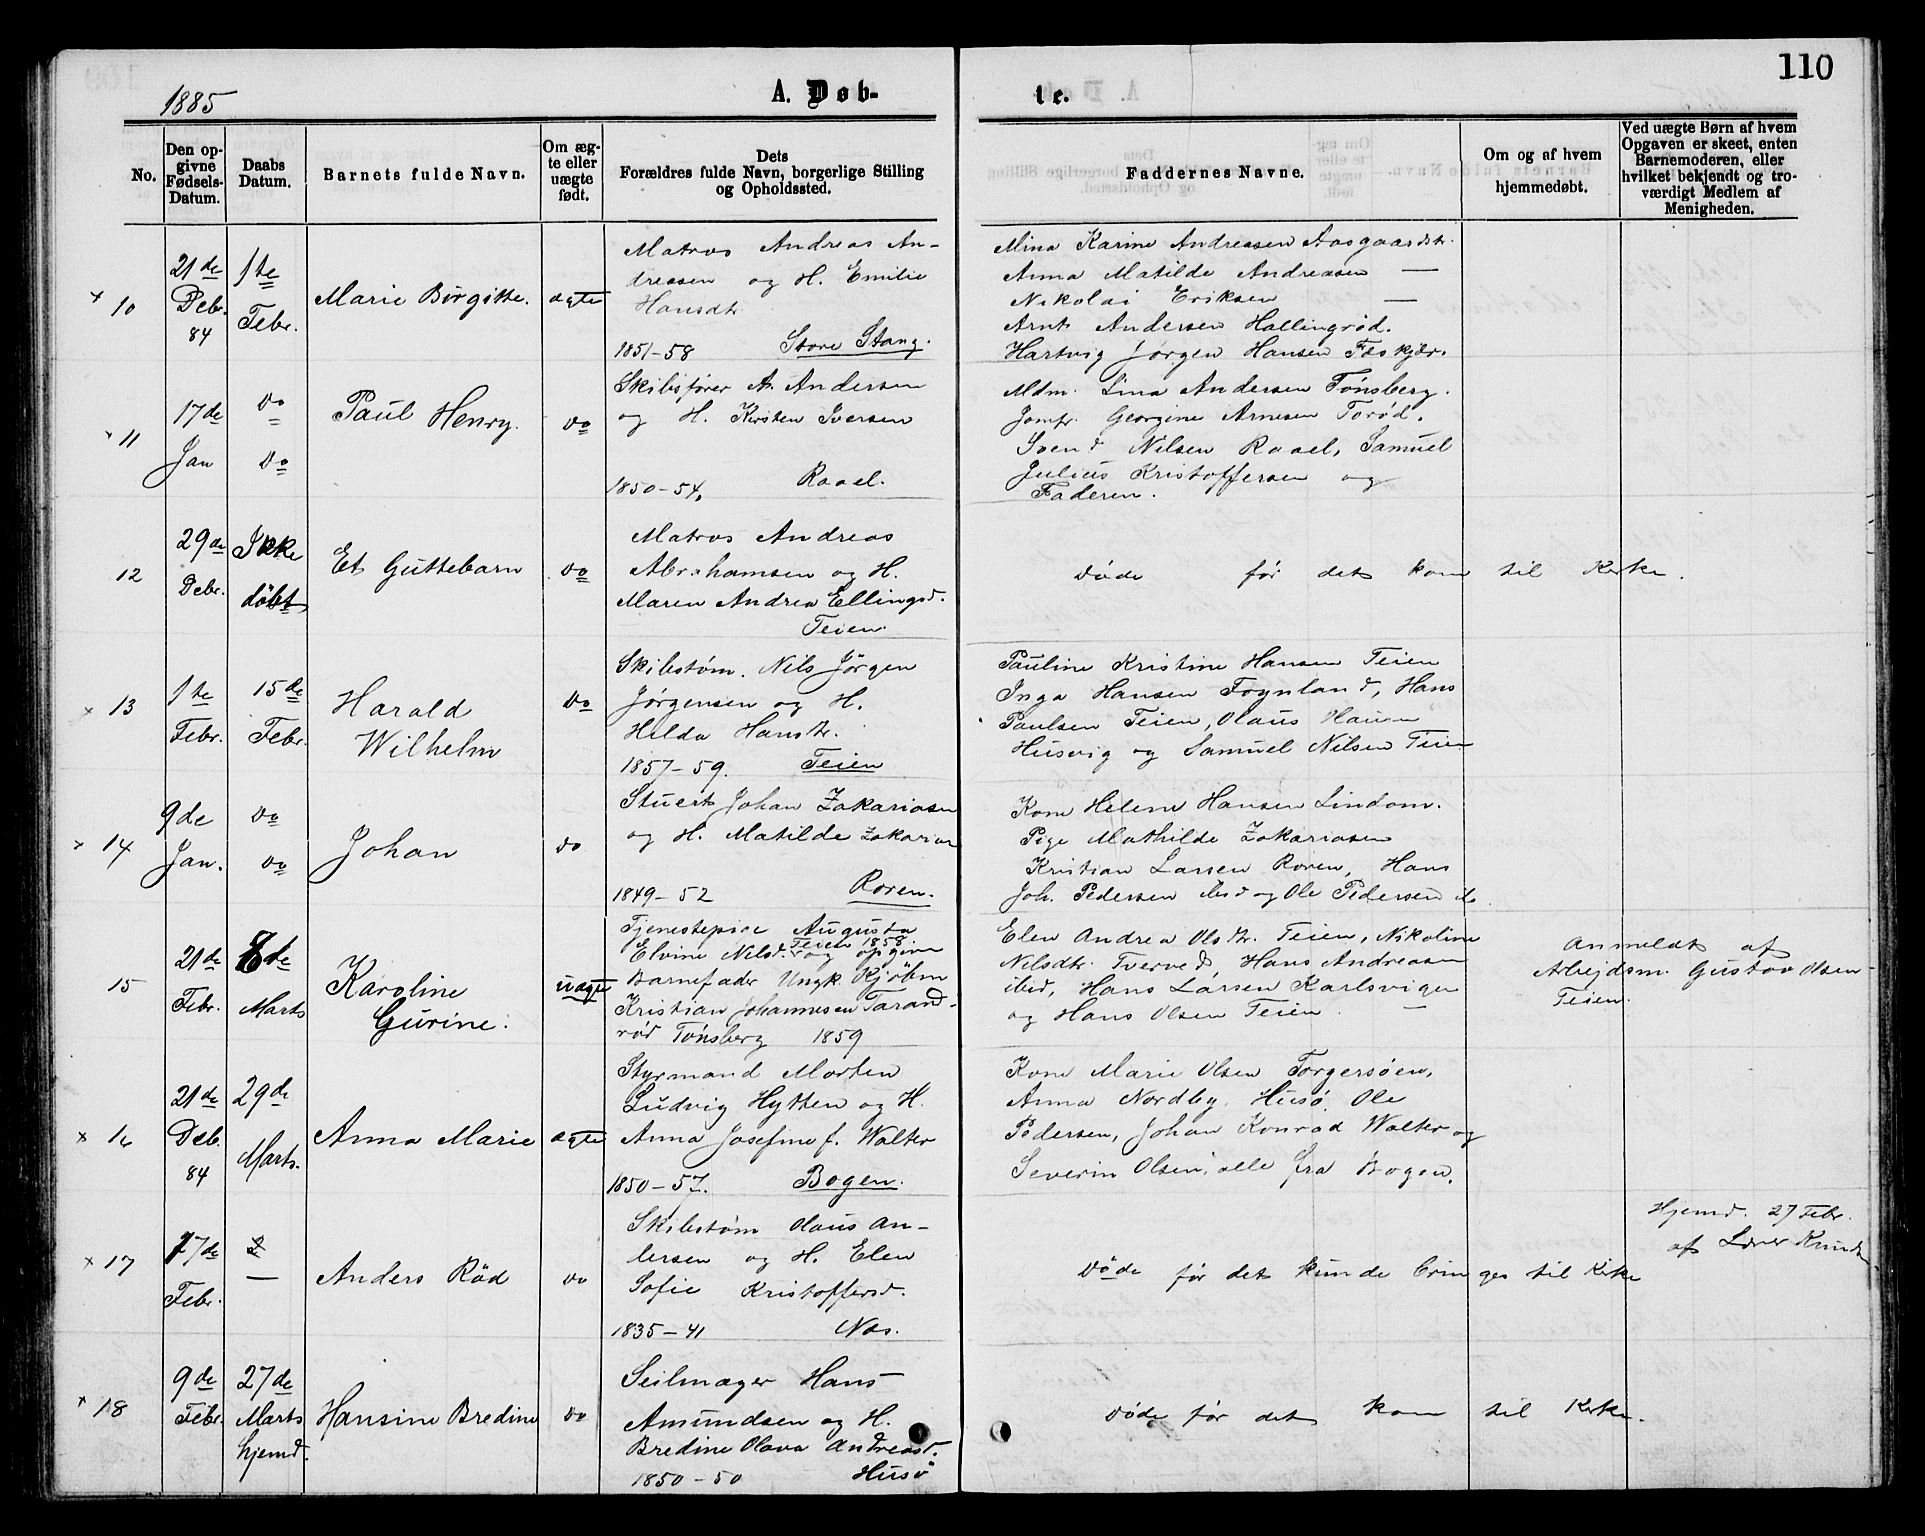 110
1885
A. Døb-
te.
No.
Den op-
givne
Fødsels-
Datum.
Daabs
Datum.
Barnets fulde Navn.
Om æg-
te eller
uægte
født.
Dets
Forældres fulde Navn, borgerlige Stilling
og Opholdssted.
Faddernes Navne.
Om og af hvem
hjemmedøbt.
Ved uægte Børn af hvem
Opgaven er skeet, enten
Barnemoderen, eller
hvilket bekjendt og tro-
værdigt Medlem af
Menigheden.
10
21de
Debr.
84
1te
Febr.
Marie Birgitte.
ægte
Matros Andreas An-
dreasen og H. Emilie
Hansdtr
1851-58 Store Stang.
Mina Karine Andreasen Aasgaardstr.
Anna Matilde Andreasen —
Nikolai Eriksen —
Arnt Andersen Hallingrød.
Hartvig Jørgen Hansen Fæskjær.
11
17de
Jan
do
do
Paul Henry.
do
Skibsfører A. Andersen
og H. Kirsten Iversen
1850-54, Rael.
Mdm. Lina Andersen Tønsberg.
Jomfr. Georgine Arnesen Torød.
Svend Nilsen Rael, Samuel
Julius Kristoffersen og
Faderen.
12
29de
Debr.
Ikke
døbt
Et Guttebarn
do
Matros Andreas
Abrahamsen og H.
Maren Andrea Ellingsd.
Teien.
Døde før det kom til Kirke.
13
1te
Febr.
15de
Febr.
Harald
Wilhelm
do
Skibstøm. Nils Jørgen
Jørgensen og H.
Hilda Hansdtr.
1857-59. Teien
Pauline Kristine Hansen Teien
Inga Hansen Foynland, Hans
Paulsen Teien, Olaus Hansen
Husvig og Samuel Nilsen Teien
14
9de
Jan.
do
do
Johan
do
Stuert Johan Zakariasen
og H. Matilde Zakarias
1849-52 Roren.
Kone Helene Hansen Lindom.
Pige Mathilde Zakariasen
Kristian Larsen Roren, Hans
Joh. Pedersen ibid og Ole Pedersen do
15
21de
Febr.
8te
Marts
Karoline
Gurine.
uægte
Tjenestepige Augusta
Elvine Nilsd. Teien 1858. og opgiven
Barnefader Ungk. Kjøbm
Kristian Johannesen Tarand-
rød Tønsberg 1859
Elen Andrea Olsdtr. Teien, Nikoline
Nilsdtr. Tverved, Hans Andreasen
ibid, Hans Larsen Karlsvigen
og Hans Olsen Teien —
Anmeldt af
Arbejdsm. Gustav Olsen
Teien.
16
21de
Deb.
84
29de
Marts.
Anna Marie
ægte
Styrmand Morten
Ludvig Hytten og H.
Anna Josefine f. Walter
1850-57. Bogen.
Kone Marie Olsen Torgersøen,
Anna Nordby Husø, Ole
Pedersen, Johan Konrad Walter og
Severin Olsen, alle fra Bogen.
17
17de
Febr.
—
Anders Rød
do
Skibstøm Olaus An-
dersen og H. Elen
Sofie Kristoffersd.
1835-41 Næs.
Døde før det kunde bringes til Kirke
Hjemd. 27 Febr.
af Lærer Knudsen
18
9de
Febr.
27de
Marts
hjemd.
Hansine Bredine
do
Seilmager Hans
Amundsen og H.
Bredine Olava Andreasd.
1850-50 Husø
Døde før det kom til Kirke.